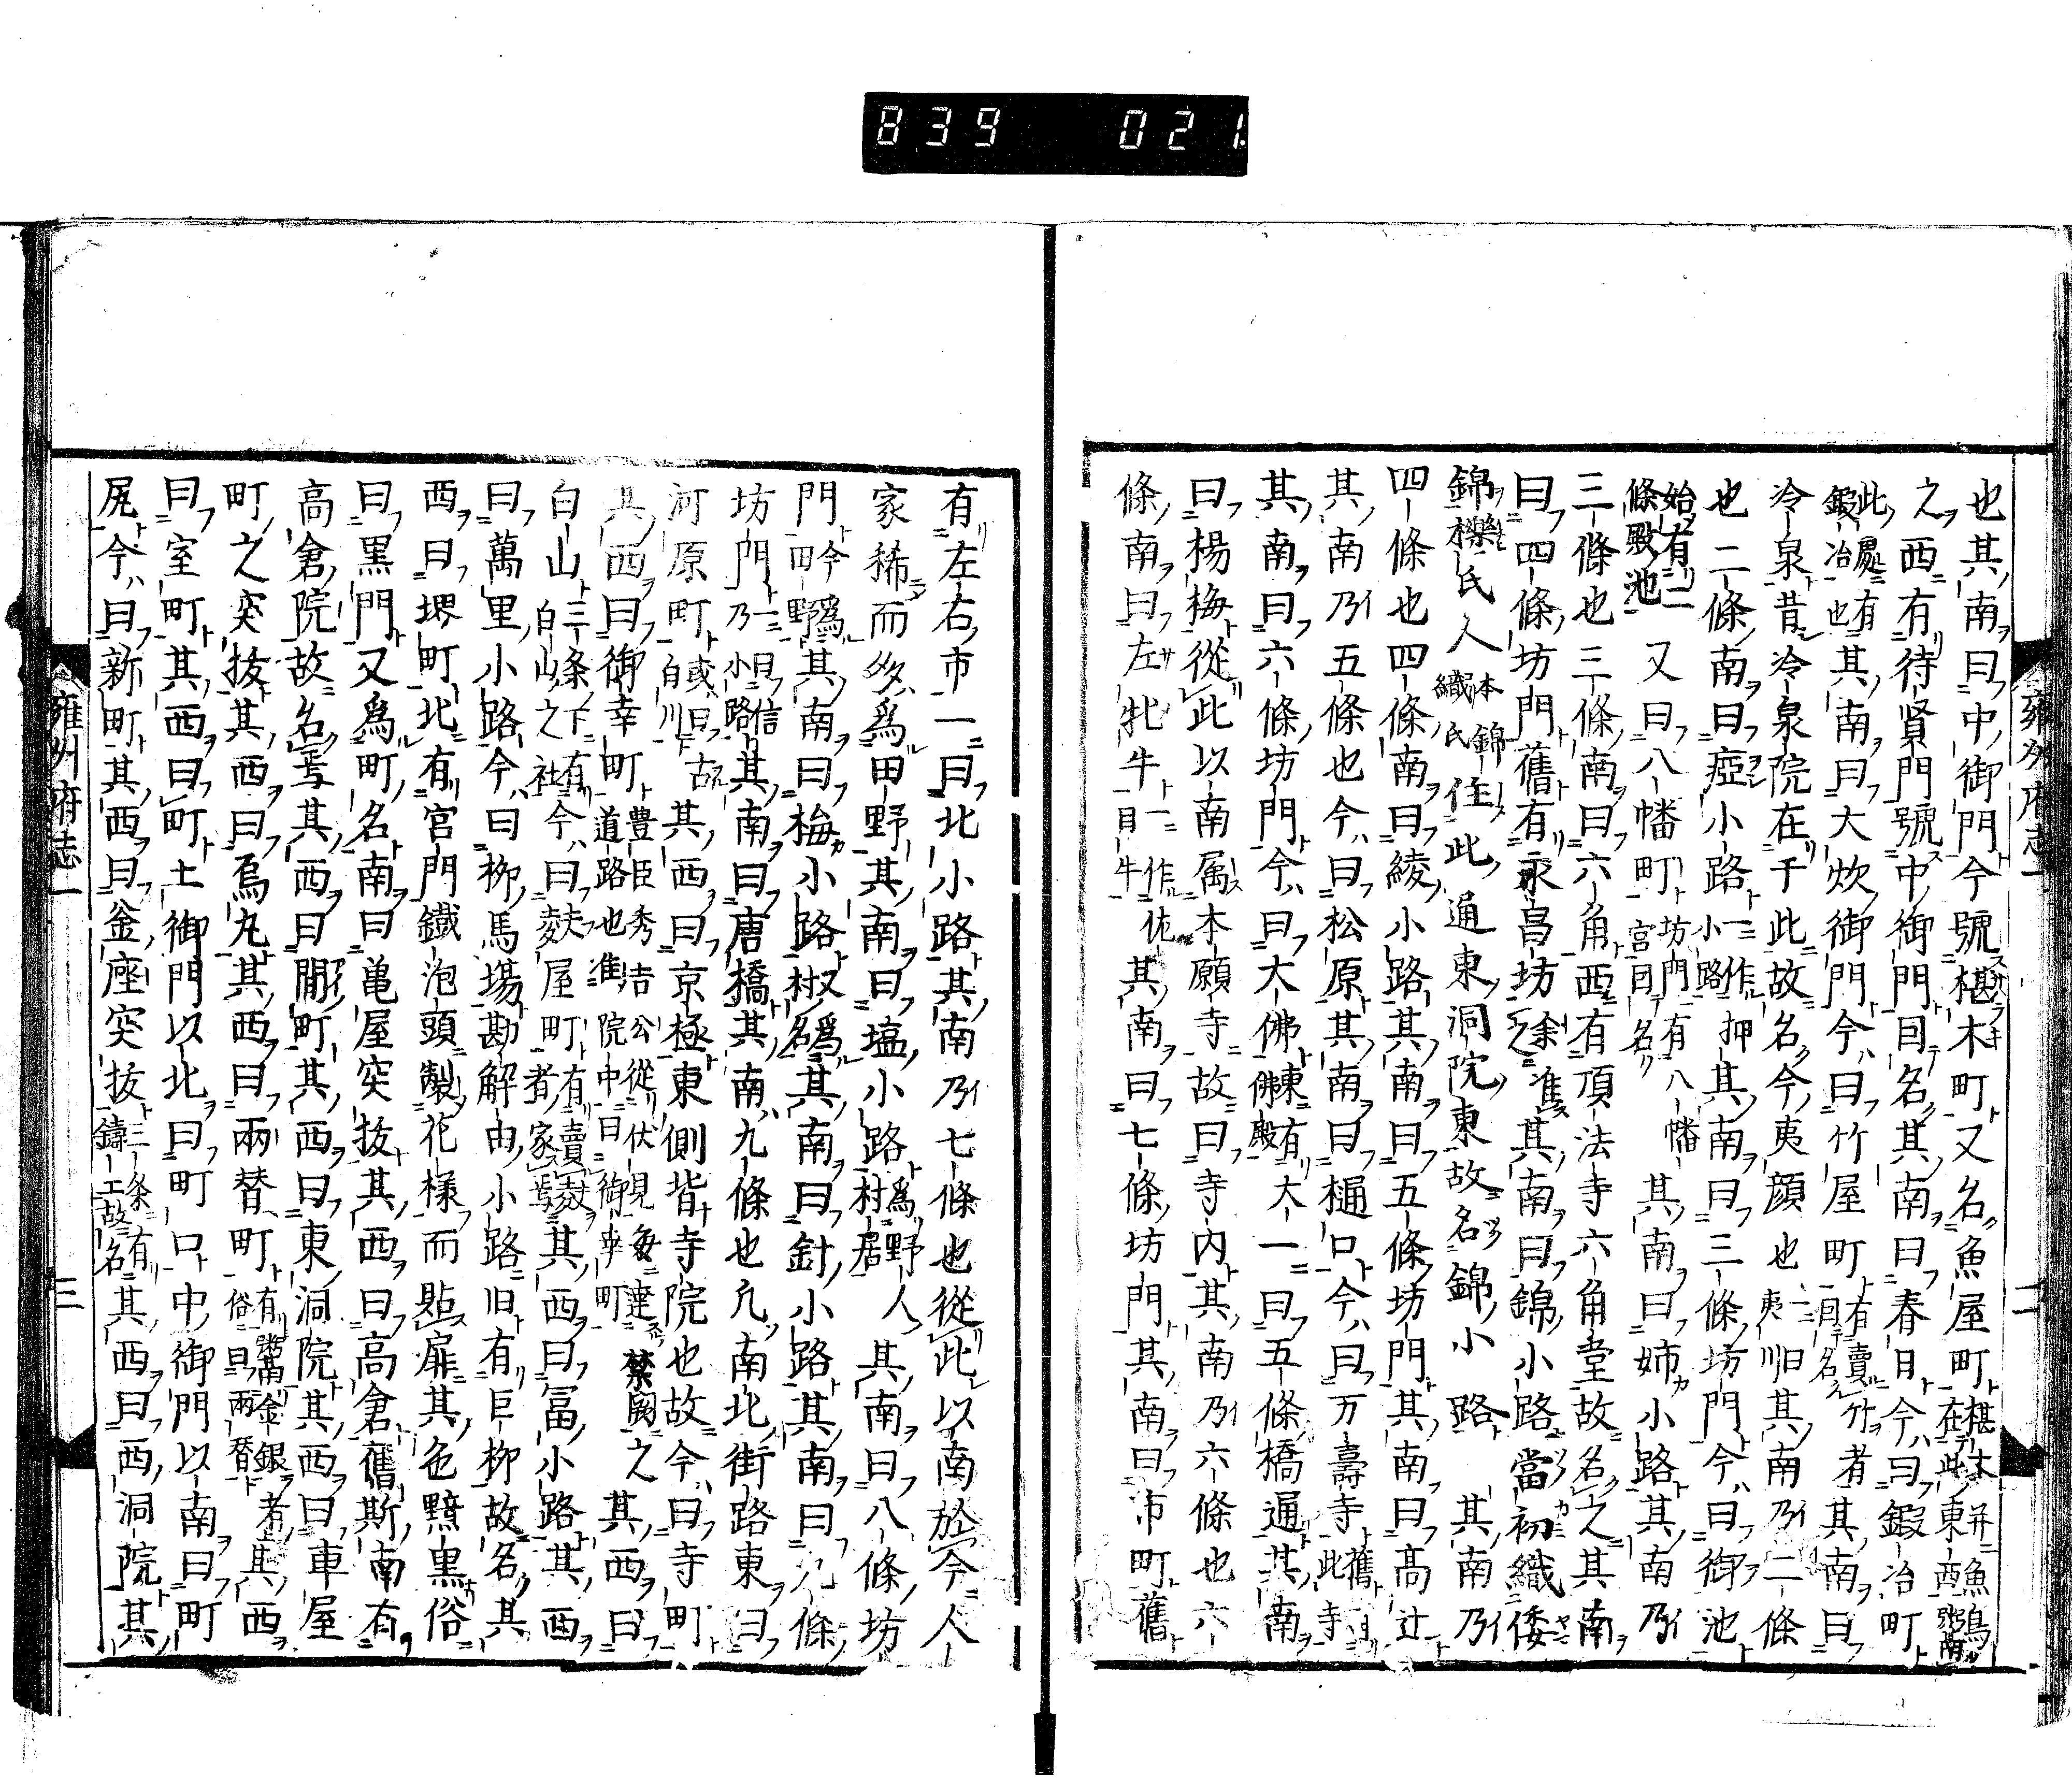 839 021
雍州府志一 二
也其南曰中御門今號椹木町又名魚屋町椹木并魚鳥在此東西
之西有待賢門號中御門因名其南曰春日今曰鍛冶町
此處有鍛冶也其南曰大炊御門今曰竹屋町有賣竹者因名其南曰
冷泉昔冷泉院在于此故名今夷顔也一曰夷川其南乃二條
也二條南曰瘂小路一作押小路其南曰三條坊門今曰御池
始有二條殿池又曰八幡町坊門有八幡宮因名其南曰姉小路其南乃
三條也三條南曰六角西有頂法寺六角堂故名之其南
曰四條坊門舊有永昌坊余准之其南曰錦小路當初織倭
錦人住此通東洞院東故名錦小路其南乃
四條也四條南曰綾小路其南曰五條坊門其南曰髙辻
其南乃五條也今曰松原其南曰樋口今曰万壽寺舊此寺
其南曰六條坊門今曰大佛東有大佛殿一曰五條橋通其南
曰楊梅從此以南属本願寺故曰寺内其南乃六條也六
條南曰左牝牛一作佐目牛其南曰七條坊門其南曰市町舊
有左右市一曰北小路其南乃七條也從此以南於今人
家稀而多爲田野其南曰塩小路爲野人村居其南曰八條坊
門今爲田野其南曰梅小路椒爲名其南曰針小路其南曰九條
坊門一曰信乃小路其南曰唐橋其南九條也凡南北街路東曰
河原町或曰古白川其西曰京極東側皆寺院也故今曰寺町
其西曰御幸町豊臣秀吉公從伏見每達禁闕之道路也准院中曰御幸町其西曰
白山三条下有白山之社今曰麩屋町有賣麩者家焉其西曰冨小路其西
曰萬里小路今曰柳馬場勘解由小路旧有巨柳故名其
西曰堺町北有宮門鐵泡頭製花樣而貼扉其色黯黒俗
曰黒門又爲町名南曰亀屋突抜其西曰高倉舊斯南有
高倉院故名焉其西曰間町其西曰東洞院其西曰車屋
町之突抜其西曰烏丸其西曰兩替町有鬻金銀者俗曰兩替其西
曰室町其西曰町土御門以北曰町口中御門以南曰町
尻今曰新町其西曰釜座突抜三条有鑄工故名其西曰西洞院其
雍州府志一 三